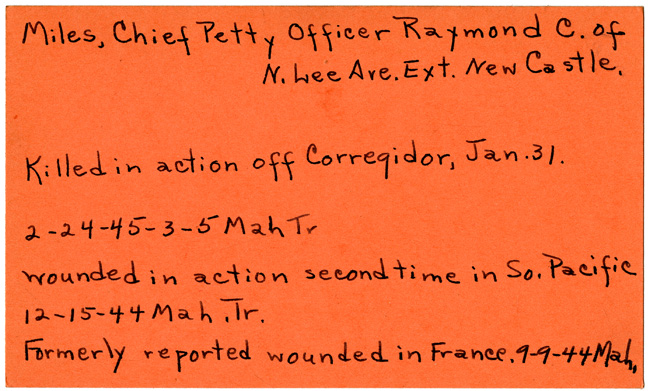 Miles, Chief Petty Officer Raymond C. of
N. Lee Ave. Ext. New Castle.
Killed in action off Corregidor, Jan. 31.
2-24-45-3-5 Mah Tr
wounded in action second time in So. Pacific
12-15-44 Mah. Tr.
Formerly reported wounded in France. 9-9-44 Mah.